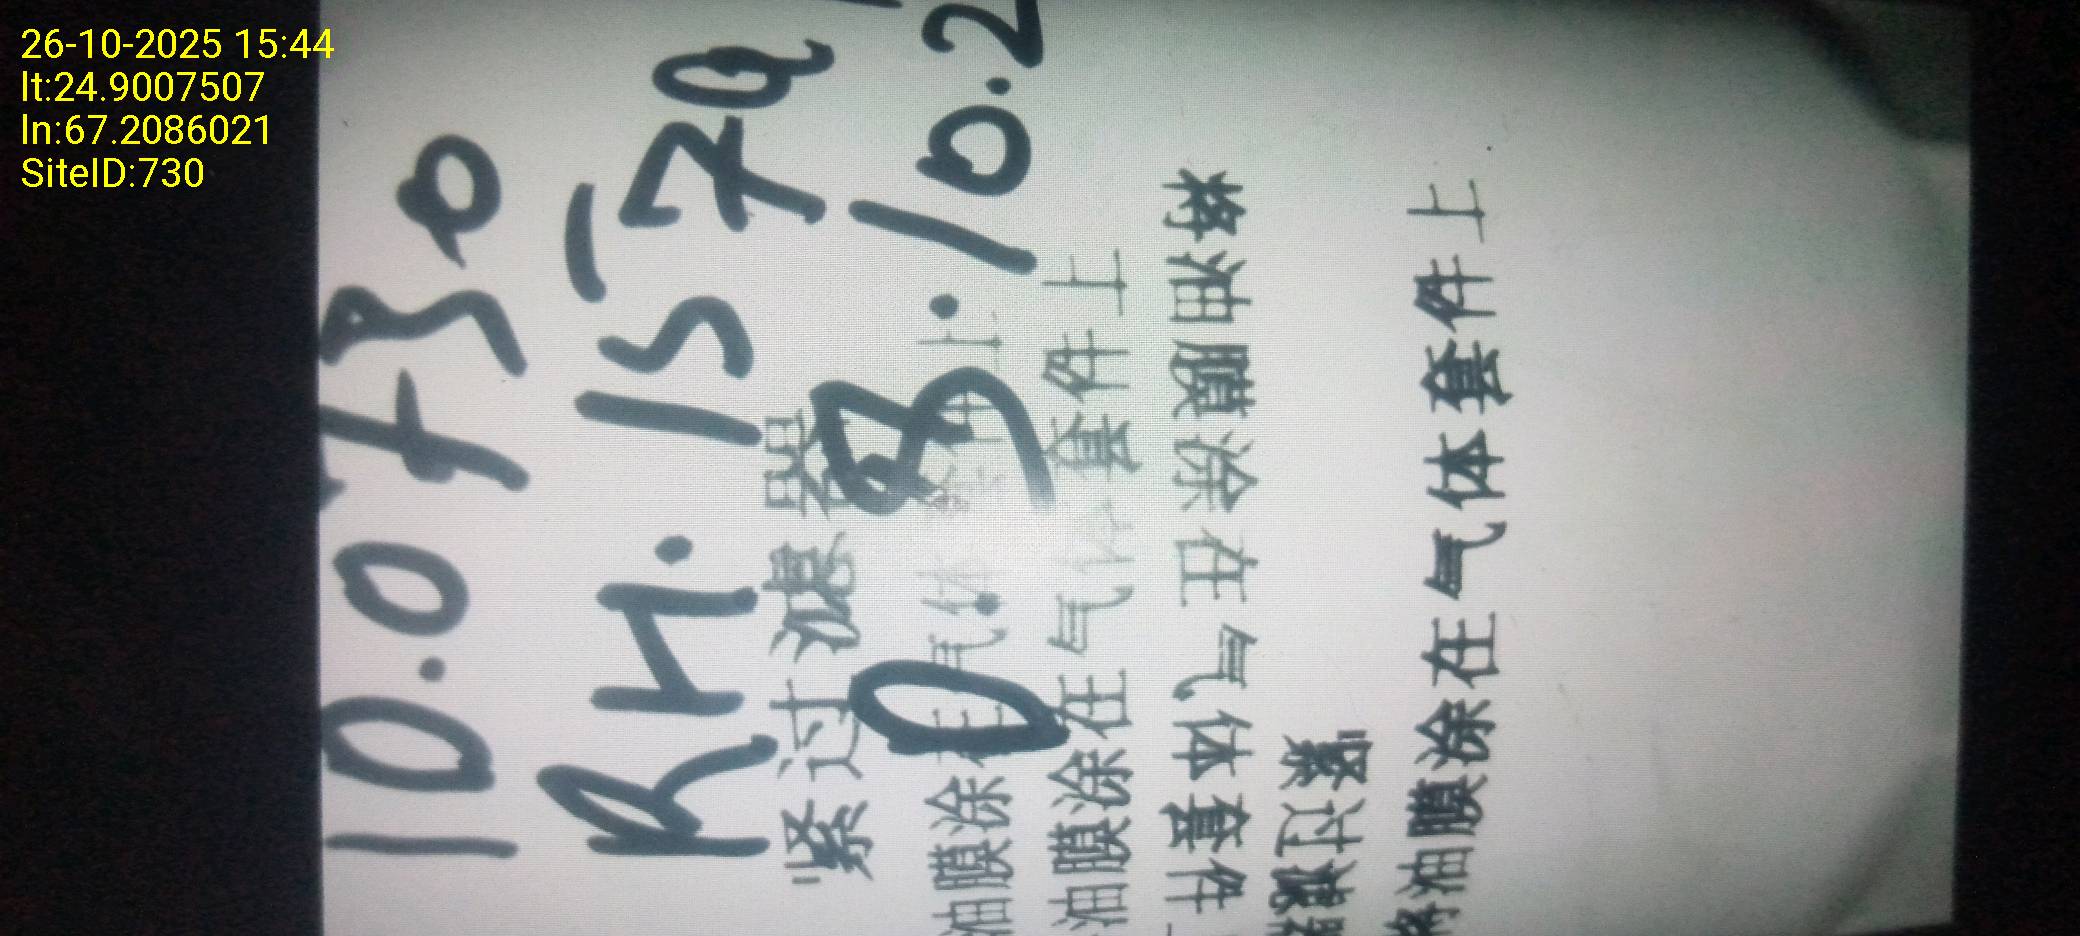 10.0730
RH.157
紧过滤器
油膜涂在气体套件上
油膜涂在气体套件上
将油膜涂在气体套件
紧过滤
将油膜涂在气体套件上
26-10-2025 15:44
lt:24.9007507
ln:67.2086021
SiteID:730